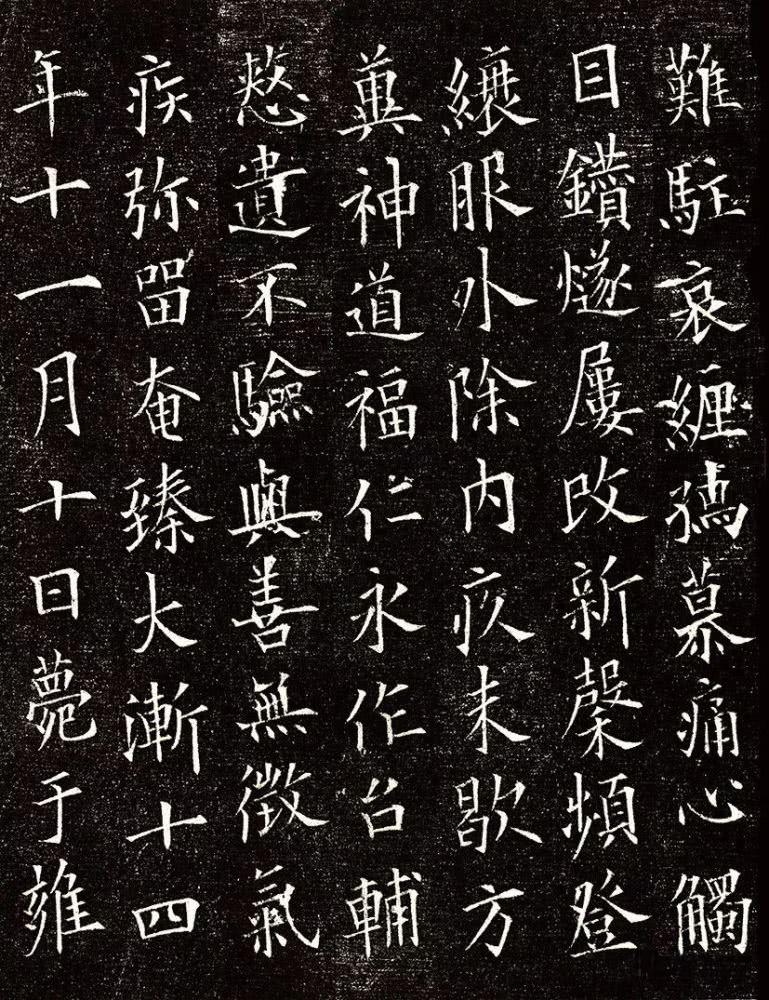 難駐哀纏孺慕痛心觸
目鑽燧屢改新馨頻登
縗服外除内疚未歇方
冀神道福仁永作台輔
憖遺不驗與善無徵氣
疾弥留奄臻大漸十四
年十一月十日薨于雍